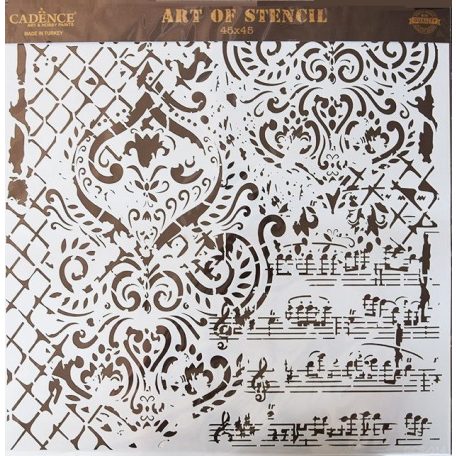 CADENCE
ART & HOBBY PAINTS
MADE IN TURKEY
ART OF STENCIL
45x45
QUALITY